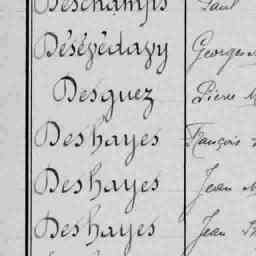 Deschamps Paul
Désévédavy Georges
Desguez Pierre M
Deshayes François
Deshayes Jean M
Deshayes Jean